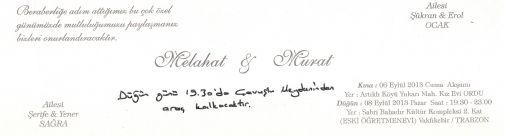 Beraberliğe adım attığımız bu çok özel
günümüzde mutluluğumuzu paylaşmanız
bizleri onurlandıracaktır.
Ailesi
Şükran & Erol
OCAK
Melahat & Murat
Düğün günü 19.30'da Çavuşlu Meydanından
araç kalkacaktır.
Ailesi
Şerife & Yener
SAĞRA
Kına : 06 Eylül 2013 Cuma Akşamı
Yer : Artıklı Köyü Yukarı Mah. Kız Evi ORDU
Düğün : 08 Eylül 2013 Pazar Saat : 19.30 - 23.00
Yer : Sabri Bahadır Kültür Kompleksi 2. Kat
(ESKİ ÖĞRETMENEVİ) Vakfıkebir / TRABZON